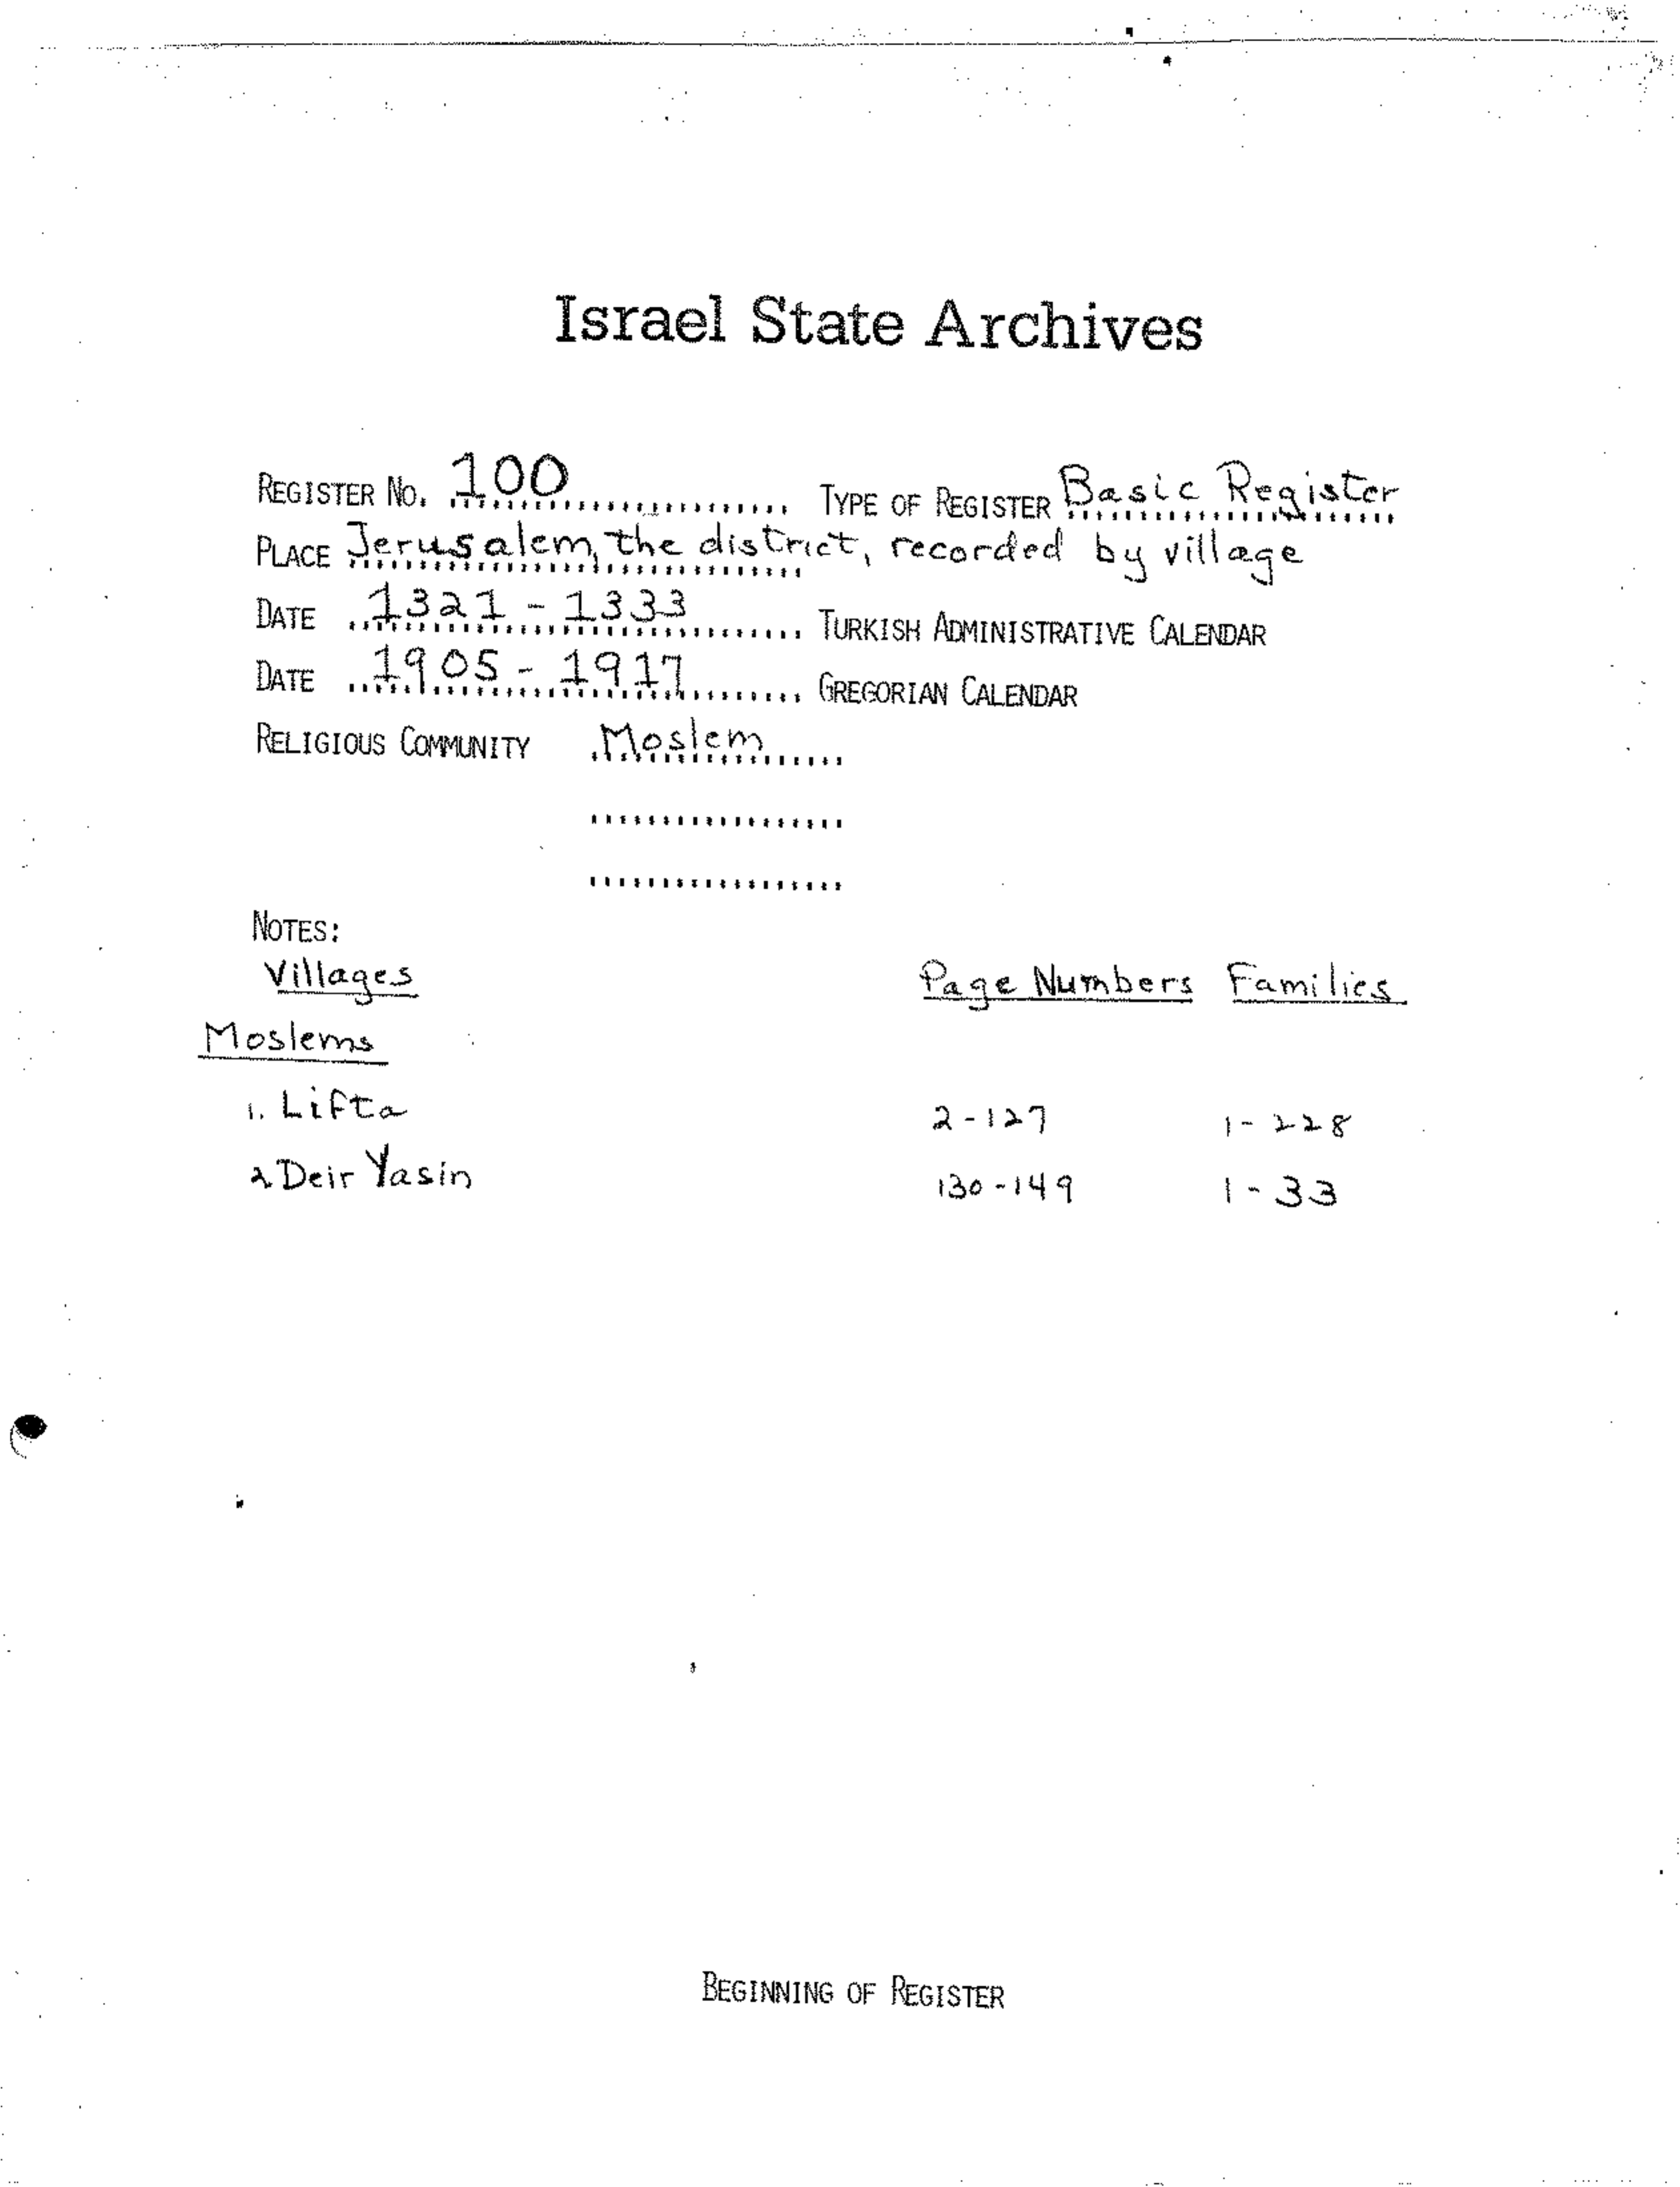 Israel State Archives
REGISTER NO. 100 TYPE OF REGISTER Basic Register
PLACE Jerusalem, the district, recorded by village
DATE 1321 - 1333 TURKISH ADMINISTRATIVE CALENDAR
DATE 1905 - 1917 GREGORIAN CALENDAR
RELIGIOUS COMMUNITY Moslem
NOTES:
Villages Page Numbers Families
Moslems
1. Lifta 2-127 1-228
2. Deir Yasin 130-149 1-33
BEGINNING OF REGISTER